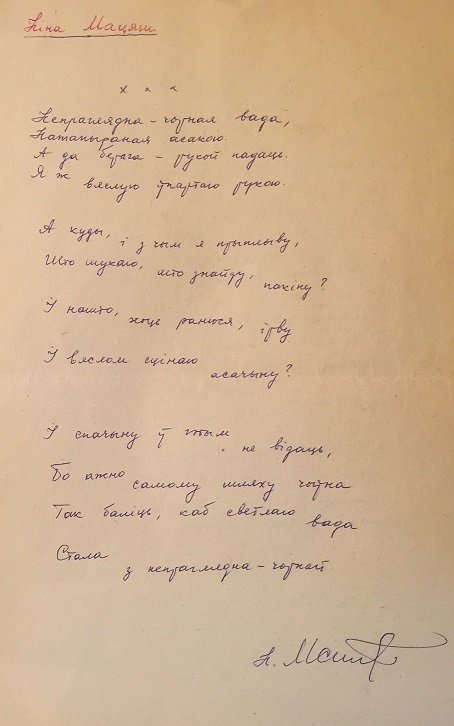 Ніна Мацяш
х х х
Непраглядна-чорная вада,
Натапыраная асакою.
А да берага - рукой падаць.
Я ж вяслую ўпартаю рукою.
А куды, і з чым я прыплыву,
Што шукаю, што знайду, пакіну?
І нашто, хоць ранюся, ірву
І вяслом сцінаю асачыну?
І спачыну ў гэтым не відаць,
Бо ажно самому шляху чоўна
Так баліць, каб светлаю вада
Стала з непраглядна-чорнай.
Н. Мацяш